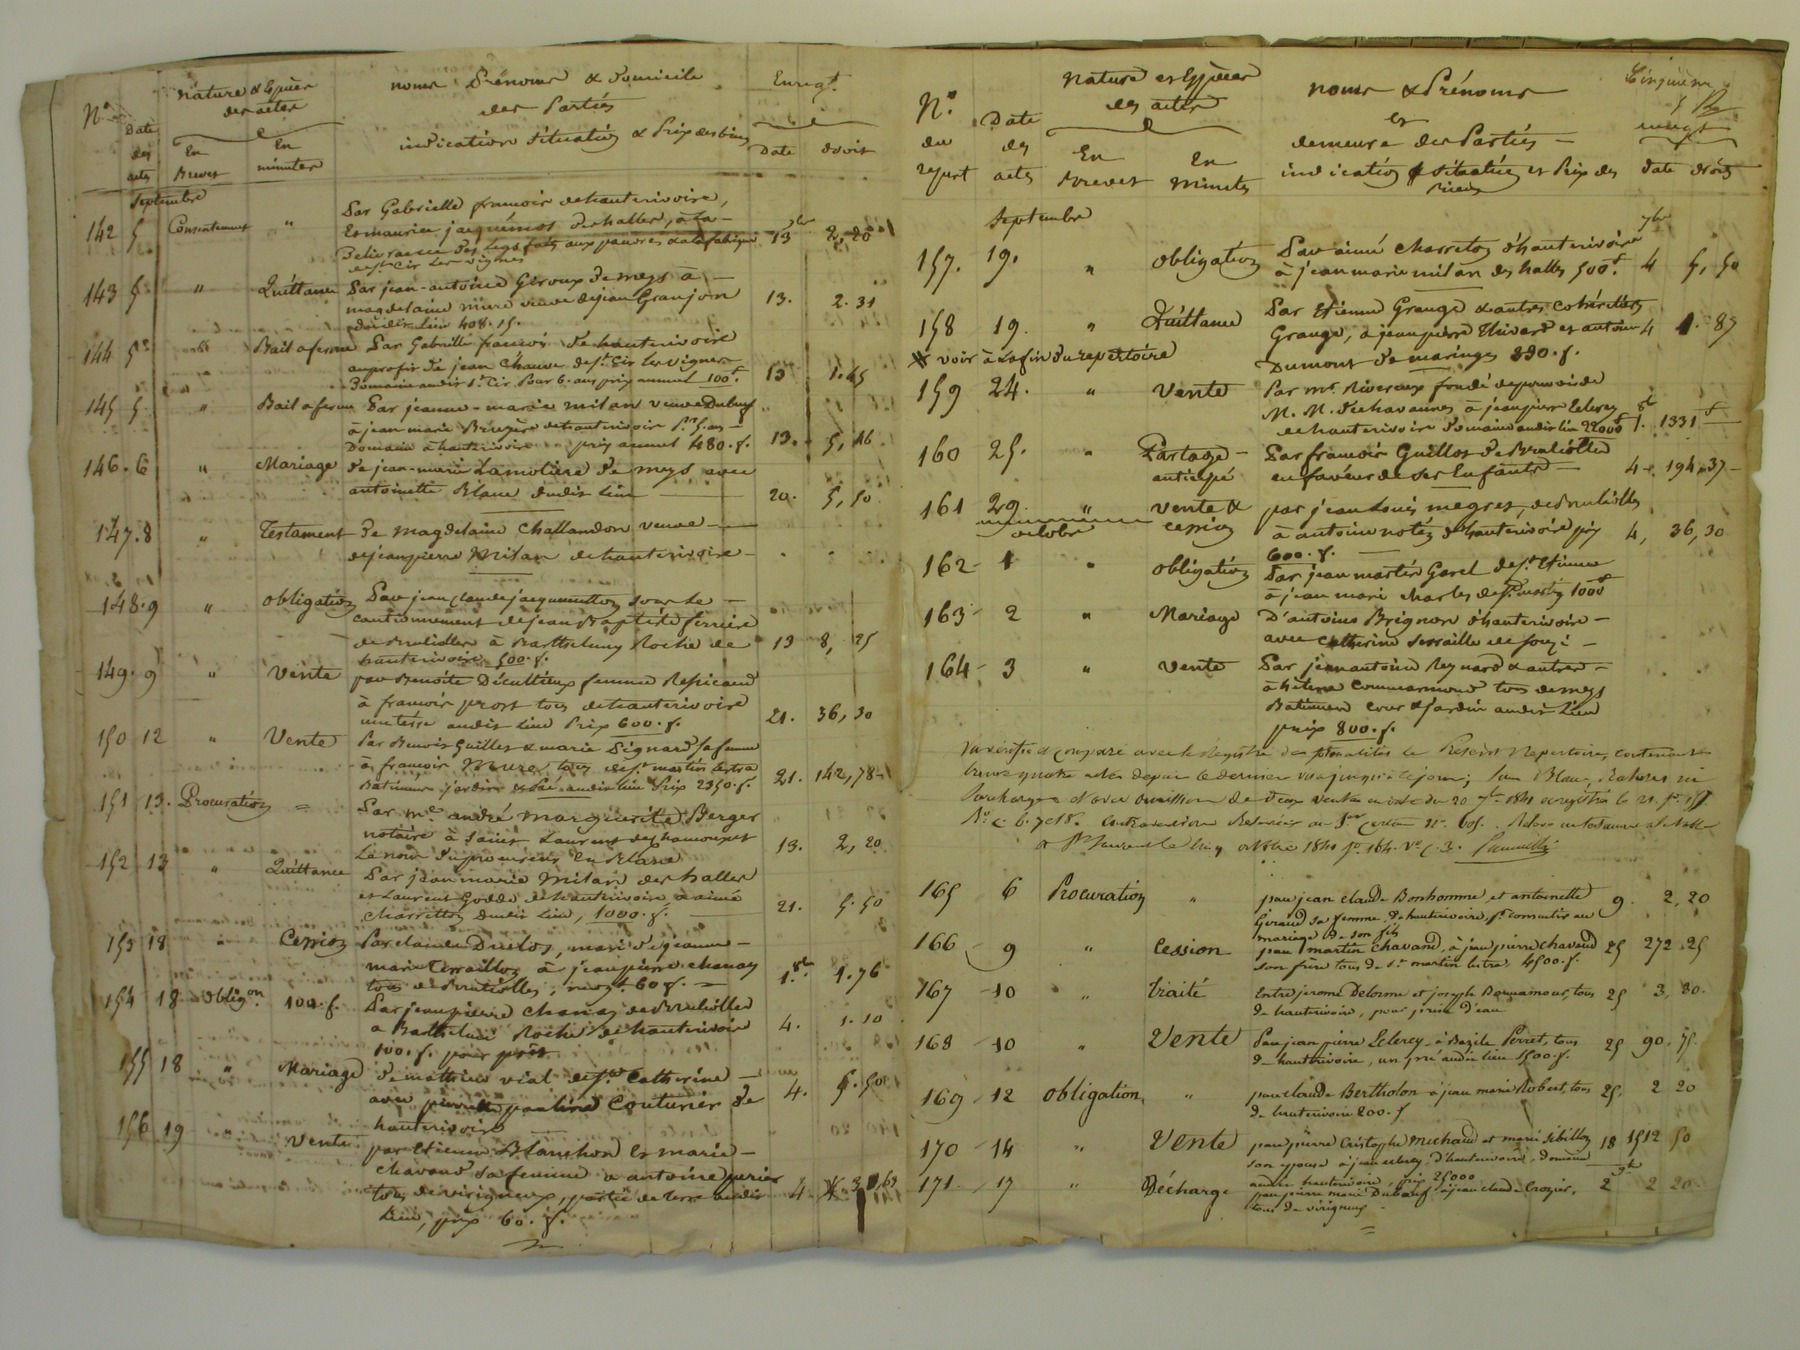 N°
Date
des
actes
Nature & Espèces
des actes
En
Brevet
En
minutes
noms Prénoms & Domicile
des Parties
indication Situation & Prix des biens
Enregt.
Date
droits
Septembre
142 5 Consentement " Par Gabrielle francois dehauterivoire,
Et maurice jacquemot des halles, à la
Délivrance des Legs faits aux pauvres & à la fabrique 13 7bre 2,20
de St Cir Les vignes
143 5 " Quittance Par jean-antoine Geroux de meys à
magdelaine mure veuve de jean Granjon 13. 2.31
dudit Lieu 408.15.
144 5 Bail a ferme Par Gabrielle francois de hauterivoire
au profit de jean Chauve de St. Cir les vignes
Domaine audit St. Cir Pour 6. ans prix annuel 100f. 13 1.65
145 5. " Bail a ferme Par jeanne-marie milan veuve Dubeuf
à jean marie Bruyère dehauterivoire Pr 5. ans
Domaine à hauterivoire prix annuel 480.f. 13. 5,16
146.6 " Mariage de jean-marie Lamotière de meys avec
antoinette Blanc dudit Lieu 20. 5,50
147.8 " Testament de magdelaine Challandon veuve
dejeanpierre Milan dehauterivoire
148.9 " obligation Par jean claude jacquemetton sous le
cautionnement de jean Baptiste ferrière
de Brulioles à Barthelemy Roche de 13 8,25
hauterivoire 500.f.
149.9 " Vente par Benoite Décultieux femme
à francois prost tous de hauterivoire
une terre audit Lieu Prix 600.f. 21. 36,30
150 12 " Vente Par Benoit Guillet & marie Pignard sa femme
à francois Mure tous de St martin Lestra
Batiment jardin & Pré audit Lieu Prix 2350.f. 21. 142,78
151 13. Procuration = Par me. andré marguerite Berger
notaire à Saint Laurent de chamousset
Le nom du procureur en Blanc 13. 2,20
152 13 " Quittance Par jean marie Milan des halles
et Laurent Godde de hauterivoire, à aimé
Charretton dudit Lieu, 1000.f. 21. 5.50
153 18 Cession Par claude Duclos, mari de jeanne
marie Terraillon à jean pierre chanay
tous de Brulioles, moyt. 60 f. 1. 8bre 1.76
154 18 obligon. 100.f. Par jeanpierre chanay de Brulioles
a Barthelemi Roche de hauterivoire 4. 1.10
100.f. pour prêt
155 18 " Mariage de mathieu vial de Ste Catherine
avec pierrette pauline Couturier de 4. 5.50
hauterivoire
156 19 " Vente par Etienne Blanchon & marie
chavand sa femme a antoine perier
tous de virigneux, partie de terre audit 4 3,63
Lieu, prix 60.f.
N°.
du
repert
Date
des
actes
nature et Espèces
des actes
En
Brevet
En
minutes
noms & Prénoms
et
demeure des Parties
indication & situation et Prix des
biens
Cinquieme
enregt
date droits
Septembre
157. 19. " obligation Par aimé charreton d'hauterivoire 7bre
à jean marie milan des halles 500f. 4 5,50
158 19. " Quittance Par Etienne Grange & autres cohéritiers
Grange, à jean pierre Thivard et antoine 4 1.87
Dumont de maringes 330.f.
voir à la fin du repertoire
159 24. " Vente Par me. Rivereux fondé de pouvoir de
M. M. de chavannes à jean pierre Leleroy
de hauterivoire Domaine audit lieu 22000f 1. 8bre 1331f
160 25. " Partage Par francois Guillot de Brulioles
anticipé en faveur de ses Enfants 4 194.37
161 29. " vente & par jean Louis megret, de Brulioles
cession à antoine notéz d'hauterivoire prix 4, 36,30
600.f.
octobre
162 1 " obligation Par jean martin Garel de St. Etienne
à jean marie charles de 1000f
163 2 " Mariage D'antoine Brignon d'hauterivoire
avec catherine Serraille de souzi
164 3 " Vente Par jean antoine Reynard & autres
à hélène Commarmond tous de meys
Batiment cour & jardin audit Lieu
prix 800.f.
Vu vérifié & comparé avec le Registre des formalités le Présent Repertoire, contenant
trente quatre actes depuis le dernier visa jusqu'à ce jour; sans Blanc, Ratures ni
Surcharges & avec omission de deux ventes en date du 20 7bre 1841 enregistrés le 21
octobre 1841 fo. 164. Vo. C. 3.
165 6 Procuration " par jean claude Bonhomme et antoinette
Giraud sa femme, de hauterivoire, pr. consentir au 9. 2,20
mariage de son fils
166 9 " Cession par martin Chavand, à jean pierre chavand 25 272.25
son frère tous de St. martin lestra, 4500.f.
167 10 " Traité Entre jerome Delorme et joseph Bonnamour, tous 25 3,30.
de hauterivoire, pour prise d'eau
168 10 " Vente Par jean pierre Leleroy à Bazile Perret, tous
de hauterivoire, un pré audit lieu 1500.f. 25 90.75
169 12 obligation " par claude Bertholon à jean marie Robert, tous 25. 2 20
de hauterivoire 200.f
170 14 " Vente par pierre Cristophe Michaud et marie Sibillon 18 1512 50
son epouse à jean Leleroy d'hauterivoire, domaine
audit hauterivoire, prix 25000
171 17 " Décharge par pierre marie Dubœuf à jean claude Crozier, 2 9bre 2 20
tous de virigneux